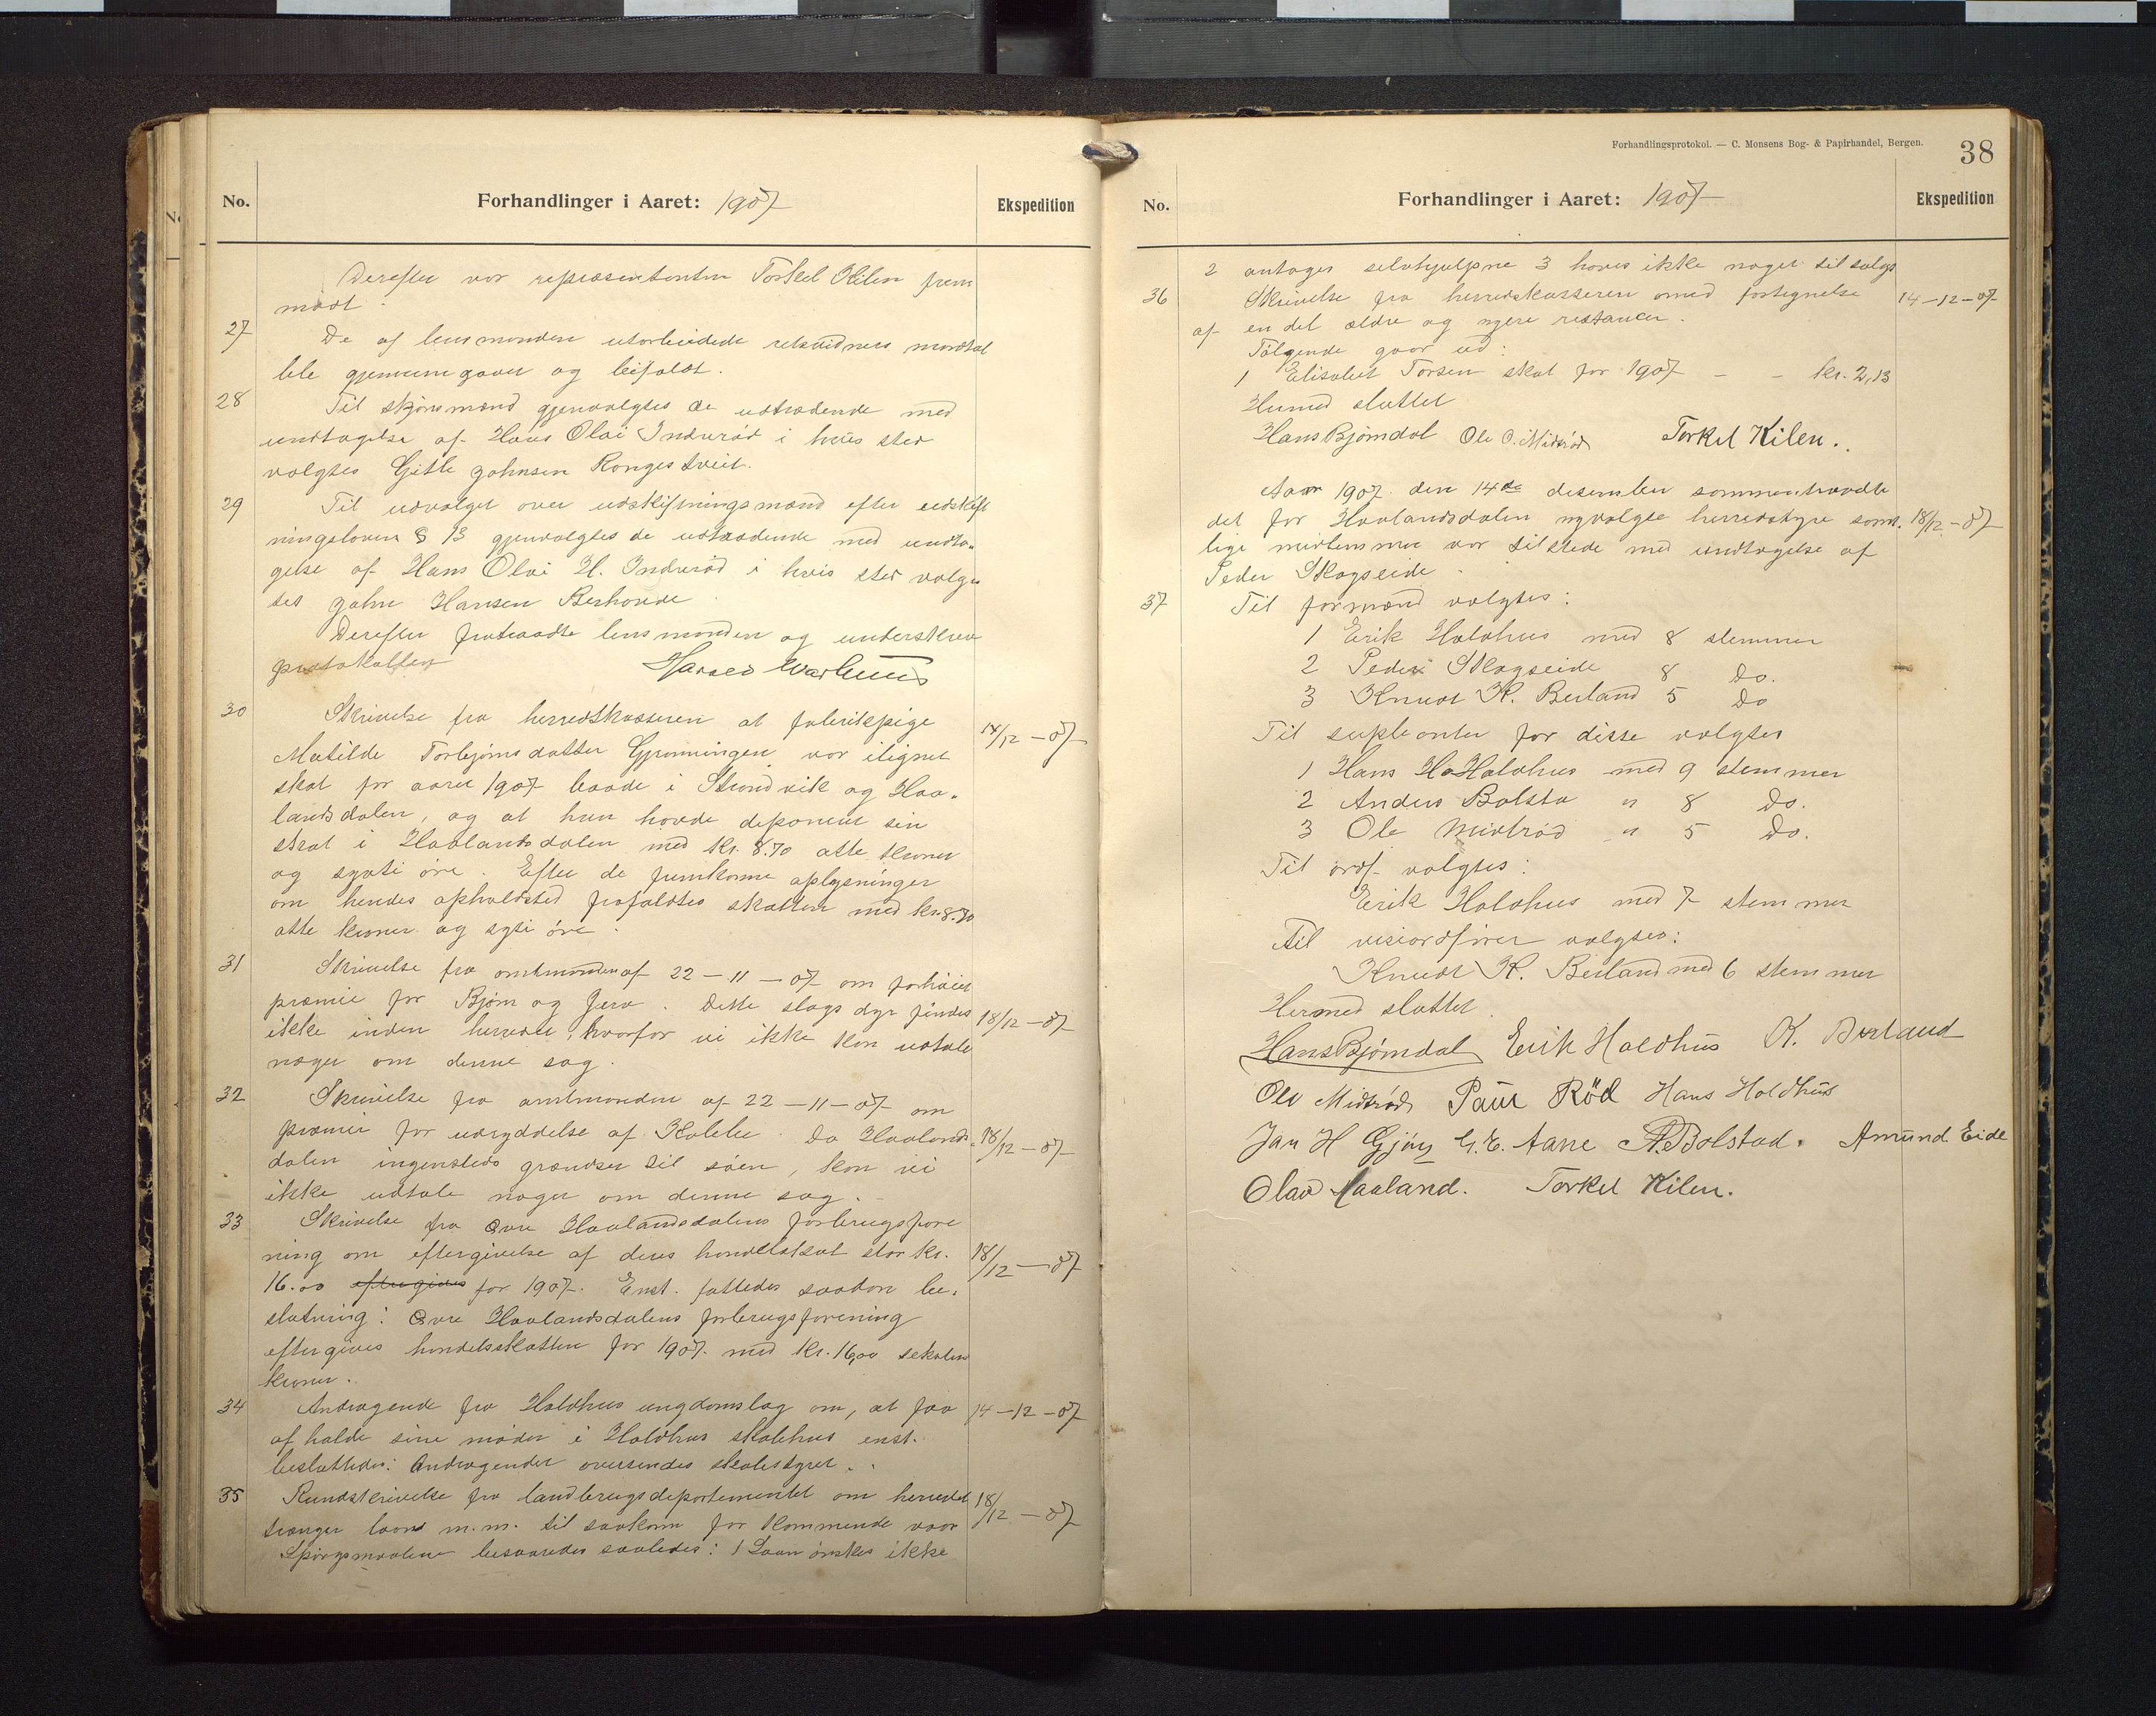 No.
Forhandlinger i Aaret: 1907
Ekspedition
Derefter var repræsentanten Torkel Kilen frem
mødt
27
De af lensmanden utarbeidede mandtal
ble gjennemgaaet og bifaldt.
28
Til skjønsmænd gjenvalgtes de udtrædende med
undtagelse af Hans Olai Indrerød i hvis sted
valgtes Gitle Johnsen Rongestveit.
29
Til udvalget over udskiftningsmænd efter udskift
ningsloven § 13 gjenvalgtes de udtrædende med undta-
gelse af Hans Olai H. Indrerød i hvis sted valg
tes John Hansen Berhovde
Derefter fratraadte lensmanden og underskrev
protokollen
30
Skrivelse fra herredskasseren at fabrikpige
Matilde Torbjørnsdatter Grønningen var ilignet
skat for aaret 1907 baade i Strandvik og Haa-
landsdalen, og at hun havde deponeret sin
skat i Haalandsdalen med kr. 8.70 otte kroner
og sytti øre. Efter de fremkomne oplysninger
om hendes opholdsted frafaldtes skatten med kr 8.70
otte kroner og sytti øre.
14/12-07
31
Skrivelse fra amtmanden af 22-11-07 om forhøiet
præmie for Bjørn og Jerv. Dette slags dyr findes
ikke inden herredet, hvorfor vi ikke kan udtale
noget om denne sag.
18/12-07
32
Skrivelse fra amtmanden af 22-11-07 om
præmie for udryddelse af Kobbe. Da Haalands-
dalen ingensteds grændser til søen, kan vi
ikke udtale noget om denne sag.
18/12-07
33
Skrivelse fra Øvre Haalandsdalens forbrugsfore
ning om eftergivelse af deres handelskat stor kr.
16.00 eftergives for 1907. Enst. fattedes saadan be-
slutning: Øvre Haalandsdalens forbrugsforening
eftergives handelsskatten for 1907 med kr. 16,00 seksten
kroner.
18/12-07
34
Andragende fra Holdhus ungdomslag om, at faa
afholde sine møder i Holdhus skolehus enst.
besluttedes: Andragendet oversendes skolestyret.
14-12-07
35
Rundskrivelse fra landbrugsdepartementet om herredet
trænger laan m.m. til saakorn for kommende vaar
Spørgsmaalene besvaredes saaledes: 1 Laan ønskes ikke
18/12-07
Forhandlingsprotokol. — C. Monsens Bog- & Papirhandel, Bergen.
38
No.
Forhandlinger i Aaret: 1907
Ekspedition
2 antages selvhjulpne 3 haves ikke noget til salgs
36
Skrivelse fra herredskasseren med fortegnelse
af en del ældre og nyere restancer.
14-12-07
Følgende gaar ud:
1 Elisabet Torsen skat for 1907 - - kr. 2,13
Hermed sluttet
Hans Bjørndal Ole O. Midtrød Torkel Kilen.
Aar 1907 den 14de desember sammentraadte
det for Haalandsdalen nyvalgte herredstyre sam-
lige medlemmer var tilstede med undtagelse af
Peder Skogseide
18/12-07
37
Til formænd valgtes:
1 Erik Holdhus med 8 stemmer
2 Peder Skogseide 8 Do.
3 Knudt K. Berland 5 Do
Til supleanter for disse valgtes
1 Hans H. Holdhus med 9 stemmer
2 Anders Bolsta " 8 Do.
3 Ole Midtrød " 5 Do.
Til ordf. valgtes:
Erik Holdhus med 7 stemmer
Til viseordfører valgtes:
Knudt K. Berland med 6 stemmer
Hermed sluttet.
Hans Bjørndal Erik Holdhus K. Berland
Ole Midtrød Paul Röd Hans Holdhus
Jan H Gjøn A. Bolstad. Amund Eide
Olav Haaland. Torkel Kilen.